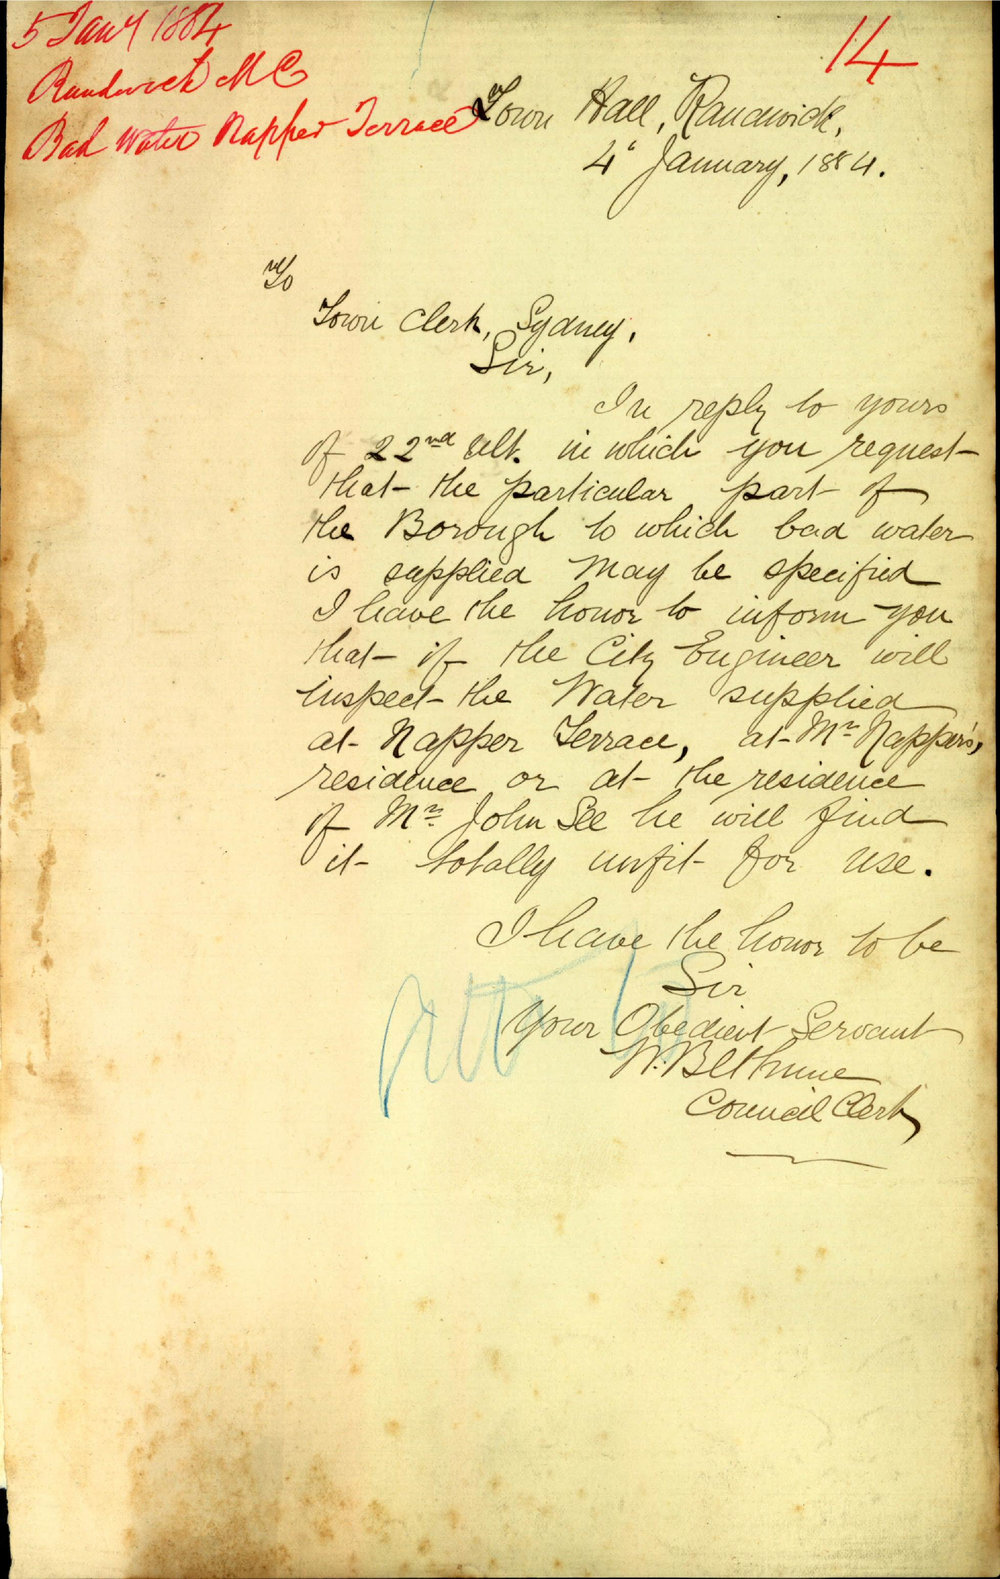 5 Jany 1884
Randwick M C
Bad Water Napper Terrace
14
Town Hall, Randwick,
4" January, 1884.
To
Town Clerk, Sydney.
Sir,
In reply to yours
of 22nd Ult. in which you request
that the particular part of
the Borough to which bad water
is supplied may be specified
I have the honor to inform you
that if the City Engineer will
inspect the Water supplied
at Napper Terrace, at Mr Napper's,
residence or at the residence
of Mr John See he will find
it totally unfit for use.
I have the honor to be
Sir
Your Obedient Servant
W. Bethune
Council Clerk